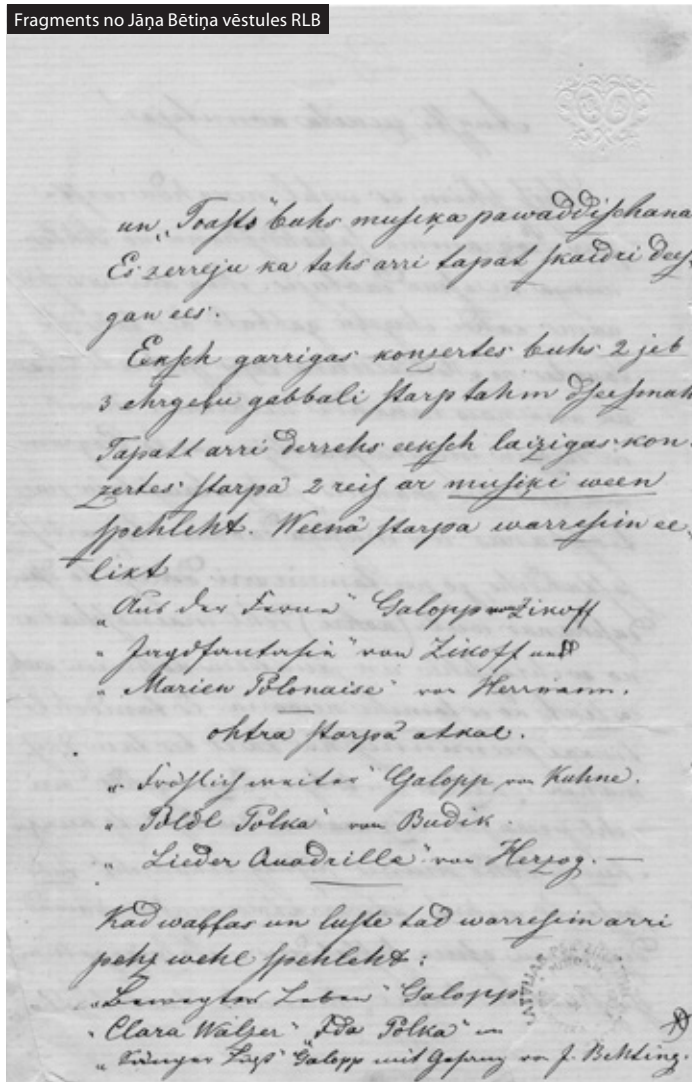 Fragments no Jāņa Bētiņa vēstules RLB
un „Toasts" buhs musiķa pawaddischana
Es zerreju ka tahs arri tapat skaidri dees-
gan ees.
Eeksch garrigas konzertes buhs 2 jeb
3 ehrgeļu gabbali starp tahm dseesmahm
Tapatt arri derrehs eeksch laizigas kon-
zertes starpâ 2 reis ar musiķi ween
spehleht. Weenâ starpa warresim ee-
likt
„Aus der Ferne" Galopp von Zikoff
„Jagdfantasie" von Zikoff und
„Marien Polonaise" von Herrmann.
ohtra starpâ atkal.
„Fröhlich weiter" Galopp von Kuhne.
„Poldl Polka" von Budik.
„Lieder Quadrille" von Herzog. —
Kad waļļas un luste tad warresim arri
pehz wehl spehleht:
„Bewegtes Leben" Galopp
„Clara Walzer" „Ida Polka" un
„Sänger Lust" Galopp mit Gesang von J. Behting.